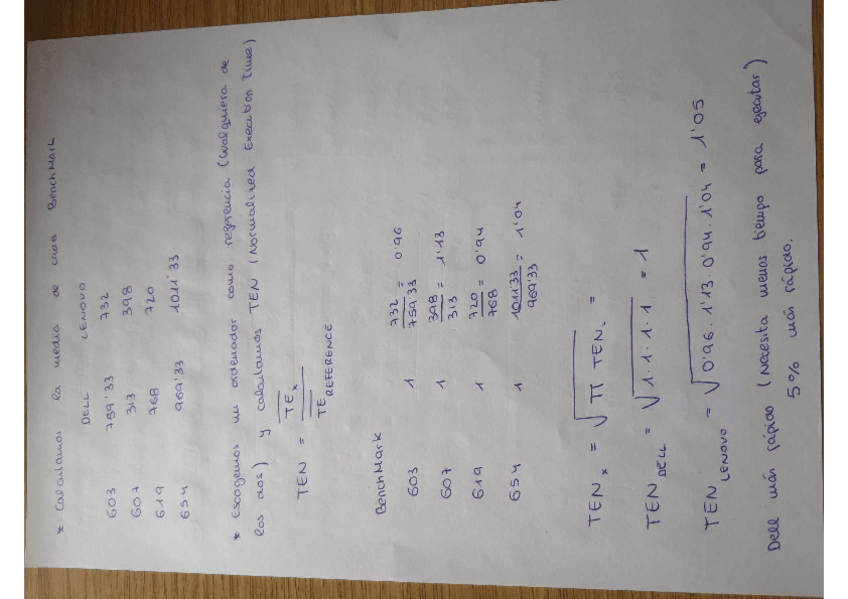 * Calculamos la media de cada BenchMark
DELL LENOVO
603 759'33 732
607 313 398
619 768 720
654 969'33 1011'33
* Escogemos un ordenador como referencia (cualquiera de
los dos) y calculamos TEN (Normalized Execution Time)
TEN = TEx / TE REFERENCE
BenchMark
603 1 732/759'33 = 0'96
607 1 398/313 = 1'13
619 1 720/768 = 0'94
654 1 1011'33/969'33 = 1'04
TENx = √π TENi =
TEN DELL = √1·1·1·1 = 1
TEN LENOVO = √0'96·1'13·0'94·1'04 = 1'05
Dell más rápido (necesita menos tiempo para ejecutar)
5% más rápido.